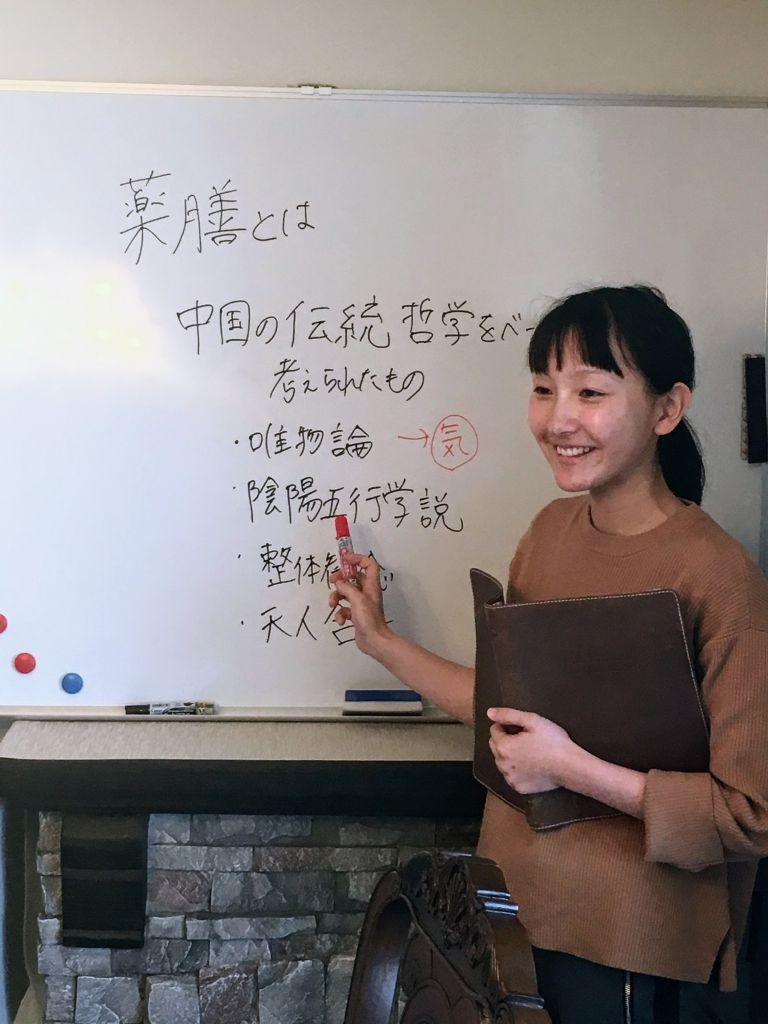 薬膳とは
中国の伝統哲学をベー
考えられたもの
・唯物論 →気
・陰陽五行学説
・整体念
・天人合